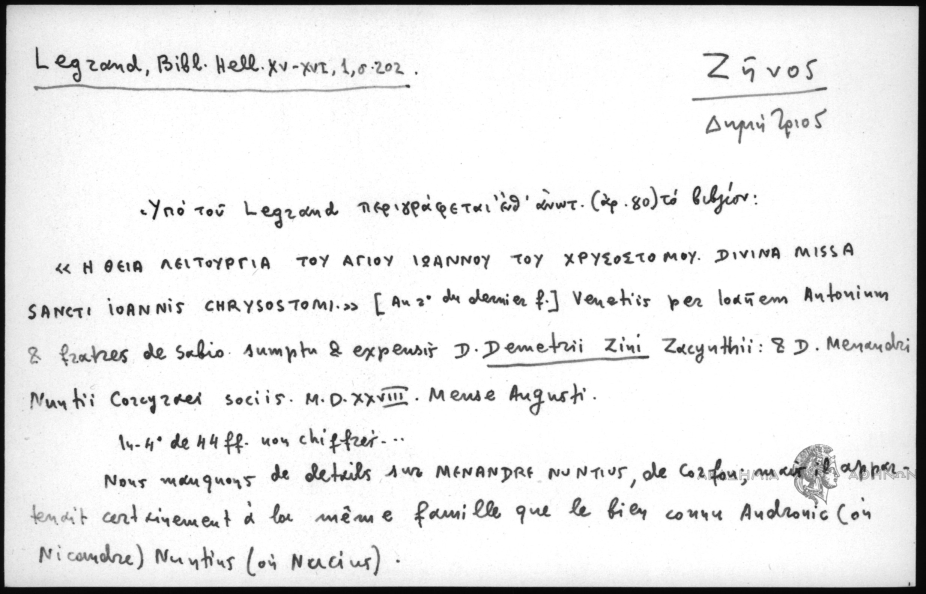 Legrand, Bibl. Hell. XV-XVI, 1, σ. 202.
Ζῆνος
Δημήτριος
Ὑπό τοῦ Legrand περιγράφεται ἐνθ' ἀνωτ. (ἀρ. 80) τό βιβλίον:
« Η ΘΕΙΑ ΛΕΙΤΟΥΡΓΙΑ ΤΟΥ ΑΓΙΟΥ ΙΩΑΝΝΟΥ ΤΟΥ ΧΡΥΣΟΣΤΟΜΟΥ. DIVINA MISSA
SANCTI IOANNIS CHRYSOSTOMI.» [Au r° du dernier f.] Venetiis per Ioañem Antonium
& fratres de Sabio. sumptu & expensis D. Demetrii Zini Zacynthii: & D. Menandri
Nuntii Corcyraei sociis. M.D.XXVIII. Mense Augusti.
In-4° de 44 ff. non chiffrés...
Nous manquons de détails sur MENANDRE NUNTIUS, de Corfou; mais il appar-
tenait certainement à la même famille que le bien connu Andronic (où
Nicandre) Nuntius (où Nucius).